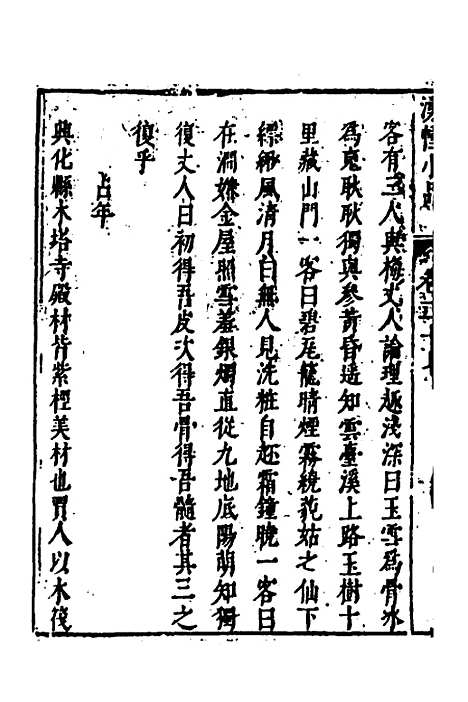 客有三人與梅丈人論理趣淺深曰玉雪為骨氷
為䰟耿耿獨與參黃昏遥知雲臺溪上路玉樹十
里藏山門一客曰碧瓦籠晴煙霧繞花姑之仙下
縹緲風清月白無人見洗粧自趂霜鐘曉一客曰
在澗嫌金屋照雪羞銀燭直從九地底陽萌知獨
復丈人曰初得吾皮次得吾骨得吾髓者其三之
復乎
占年
興化縣木塔寺殿材皆紫檉美材也賈人以木筏